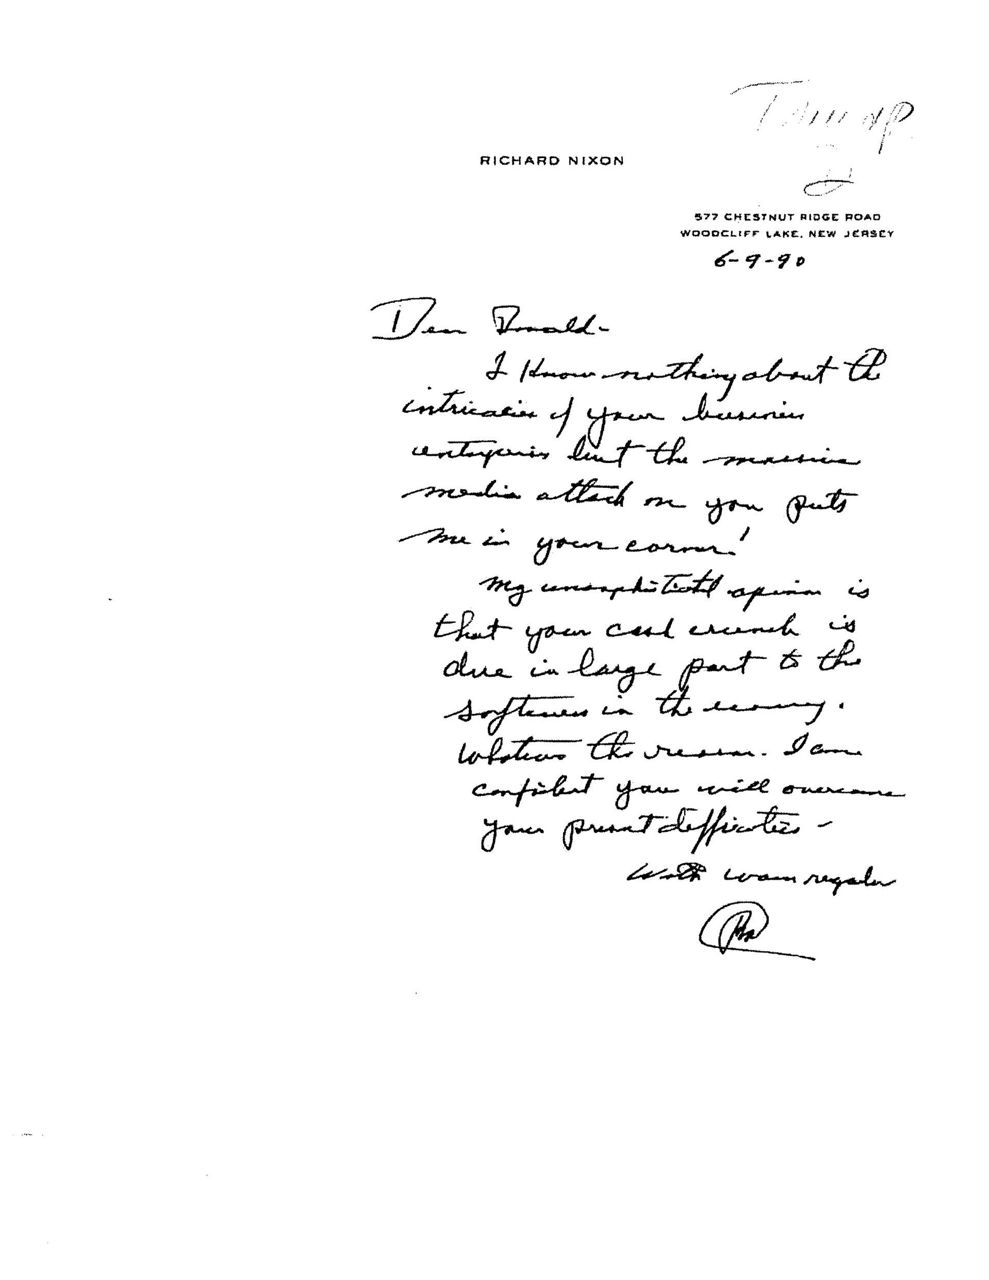 Trump
RICHARD NIXON
577 CHESTNUT RIDGE ROAD
WOODCLIFF LAKE, NEW JERSEY
6-9-90
Dear Donald-
I know nothing about the
intricacies of your business
enterprises but the massive
media attack on you puts
me in your corner!
My unsophisticated opinion is
that your cash crunch is
due in large part to the
softness in the economy.
Whatever the reason. I am
confident you will overcome
your present difficulties -
With warm regards
RN